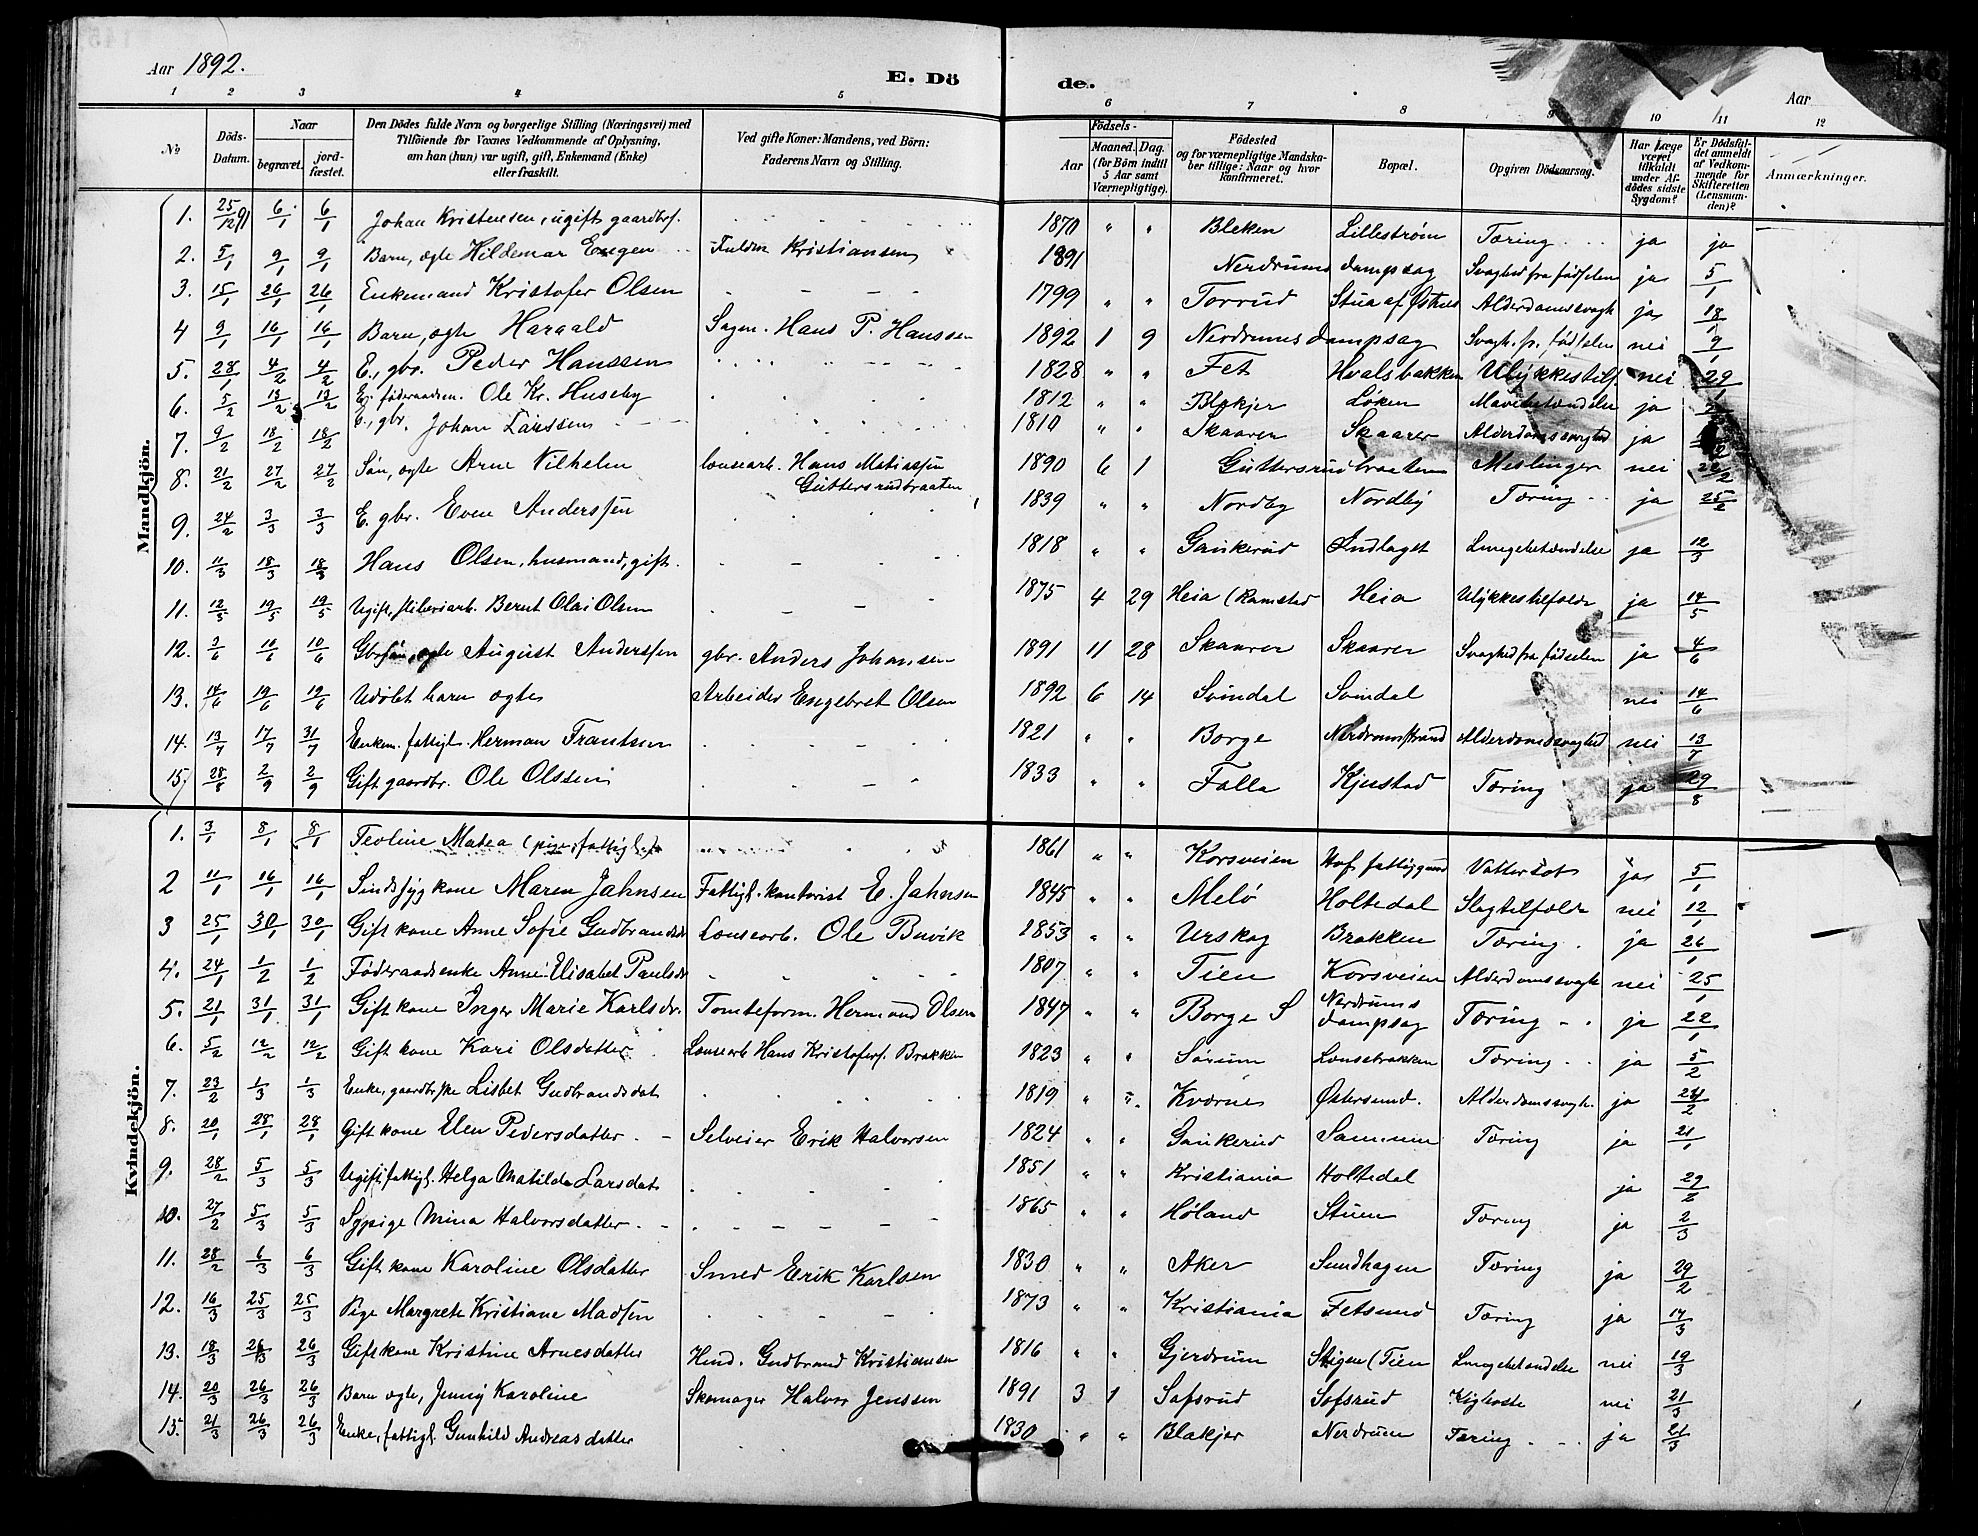 Aar 1892. E. Dö de. Aar
1 2 3 4 5 6 7 8 9 10 11 12
№ Döds-Datum. Naar begravet. jordfæstet. Den Dödes fulde Navn og borgerlige Stilling (Næringsvei) med Tilföiende for Voxnes Vedkommende af Oplysning, om han (hun) var ugift, gift, Enkemand (Enke) eller fraskilt. Ved gifte Koner: Mandens, ved Börn: Faderens Navn og Stilling. Födsels- Aar Maaned. Dag. (for Börn indtil 5 Aar samt Værnepligtige). Födested og for værnepligtige Mandskaber tillige: Naar og hvor konfirmeret. Bopæl. Opgiven Dödsaarsag. Har Læge været tilkaldt under Afdödes sidste Sygdom? Er Dödsfaldet anmeldt af Vedkommende for Skifteretten (Lensmanden)? Anmærkninger.
Mandkjön.
1. 25/12 91 6/1 6/1 Johan Kristensen, ugift gaardbrs. 1870 " " Bleken Lillestrøm Tæring ja ja
2. 5/1 9/1 9/1 Barn, ægte Hildemar Engen Kristiansen 1891 Nerdrums dampsag Svaghed fra fødselen ja 5/1
3. 15/1 26/1 26/1 Enkemand Kristofer Olsen 1799 " " Torrud Stua af Østnes Alderdomssvagh ja 18/1
4 9/1 16/1 16/1 Barn, ægte Harald Sagm. Hans P. Hanssen 1892 1 9 Nerdrums dampsag Svagh. fr. fødselen nei 9/1
5. 28/1 4/2 4/2 E., gbr. Peder Hanssen 1828 " " Fet Hvalsbakken Ulykkestilf. nei 29/1
6. 5/2 13/2 13/2 E. føderaadsm. Ole Kr. Huseby 1812 " " Blakjer Løken Mavebetændelse ja
7. 9/2 18/2 18/2 E., gbr. Johan Larssen 1810 " " Skaarer Skaarer Alderdomssvaghed ja
8. 21/2 27/2 27/2 Søn, ægte Arne Vilhelm Lønsearb. Hans Matiassen Guttersrudbraaten 1890 6 1 Guttersrudbraaten Meslinger nei 22/2
9. 24/2 3/3 3/3 E. gbr. Even Anderssen 1839 " " Nordby Nordby Tæring ja 25/2
10. 11/3 18/3 18/3 Hans Olsen, husmand, gift. 1818 " " Gankerud Lundlaget Lungebetændelse ja 12/3
11. 12/5 19/5 19/5 Ugift, sliberiarb. Bernt Olai Olsen 1875 4 29 Heia (Ramstad Heia Ulykkestilfælde ja 14/5
12. 2/6 10/6 10/6 Gbrsøn, ægte August Anderssen gbr. Anders Johansen 1891 11 28 Skaarer Skaarer Svaghed fra fødselen ja 4/6
13. 14/6 19/6 19/6 Udøbt barn ægte Arbeider Engebret Olsen 1892 6 14 Svindal Svindal nei 14/6
14. 13/7 17/7 31/7 Enkem. fattigl. Herman Frantsen 1821 " " Borge Nerdrumstrand Alderdomssvaghed nei 13/7
15. 28/8 2/9 2/9 Gift gaardbr. Ole Olssen 1833 " " Falla Kjustad Tæring ja 29/8
Kvindekjön.
1. 3/1 8/1 8/1 Teoline Matea (pige, fattigl.) 1861 " " Korsveien Hof fattiggaard Vattersot ja 5/1
2 11/1 16/1 16/1 Sindssyg kone Maren Jahnsen Fattigl. kontorist E. Jahnsen 1845 " " Melø Holtedal Slagtilfælde nei 12/1
3 25/1 30/1 30/1 Gift kone Anne Sofie Gudbrandsd. Lønsearb. Ole Buvik 1853 " " Urskog Brakken Tæring. ja 26/1
4. 24/1 1/2 1/2 Føderaadsenke Anne Elisabet Paulsdr. 1807 " " Tien Korsveien Alderdomssvagh nei 25/1
5. 21/1 31/1 31/1 Gift kone Inger Marie Karlsdr. Tomteform. Hermund Olsen 1847 " " Borge S Nerdrums dampsag Tæring ja 22/1
6. 5/2 12/2 12/2 Gift kone Kari Olsdatter Lønsearb Hans Kristofers. Brakken 1823 " " Sørum Lønsebrakken Tæring ja 5/2
7. 23/2 1/3 1/3 Enke, gaardbrske Lisbet Gudbrandsdat 1819 " " Kværnes Østersund. Alderdomssvagh. ja 24/2
8. 20/1 28/1 28/1 Gift kone Elen Pedersdatter Selveier Erik Halvorsen 1824 " " Gankerud Sammen Tæring ja 21/1
9. 28/2 5/3 5/3 Ugift, fattigl. Helga Matilde Larsdat 1851 " " Kristiania Holtedal ja 29/2
10. 27/2 5/3 5/3 Sypige Mina Halvorsdatter. 1865 " " Høland Stuen Tæring ja 2/3
11. 28/2 6/3 6/3 Gift kone Karoline Olsdatter Smed Erik Karlsen 1830 " " Aker Sundhagen Tæring ja 29/2
12. 16/3 25/3 25/3 Pige Margrete Kristiane Madsen 1873 " " Kristiania Fetsund Tæring ja 17/3
13. 18/3 26/3 26/3 Gift kone Kristine Arnesdatter Husd. Gudbrand Kristiansen 1816 " " Gjerdrum Stigen (Tien Lungebetændelse nei 19/3
14. 20/3 26/3 26/3 Barn ægte, Jenny Karoline Skomager Halvor Jenssen 1891 3 1 Sofsrud Sofsrud Kighoste nei 21/3
15. 21/3 26/3 26/3 Enke, fattigl. Gunhild Andreasdatter 1830 " " Blakjer Nerdrum Tæring ja 21/3